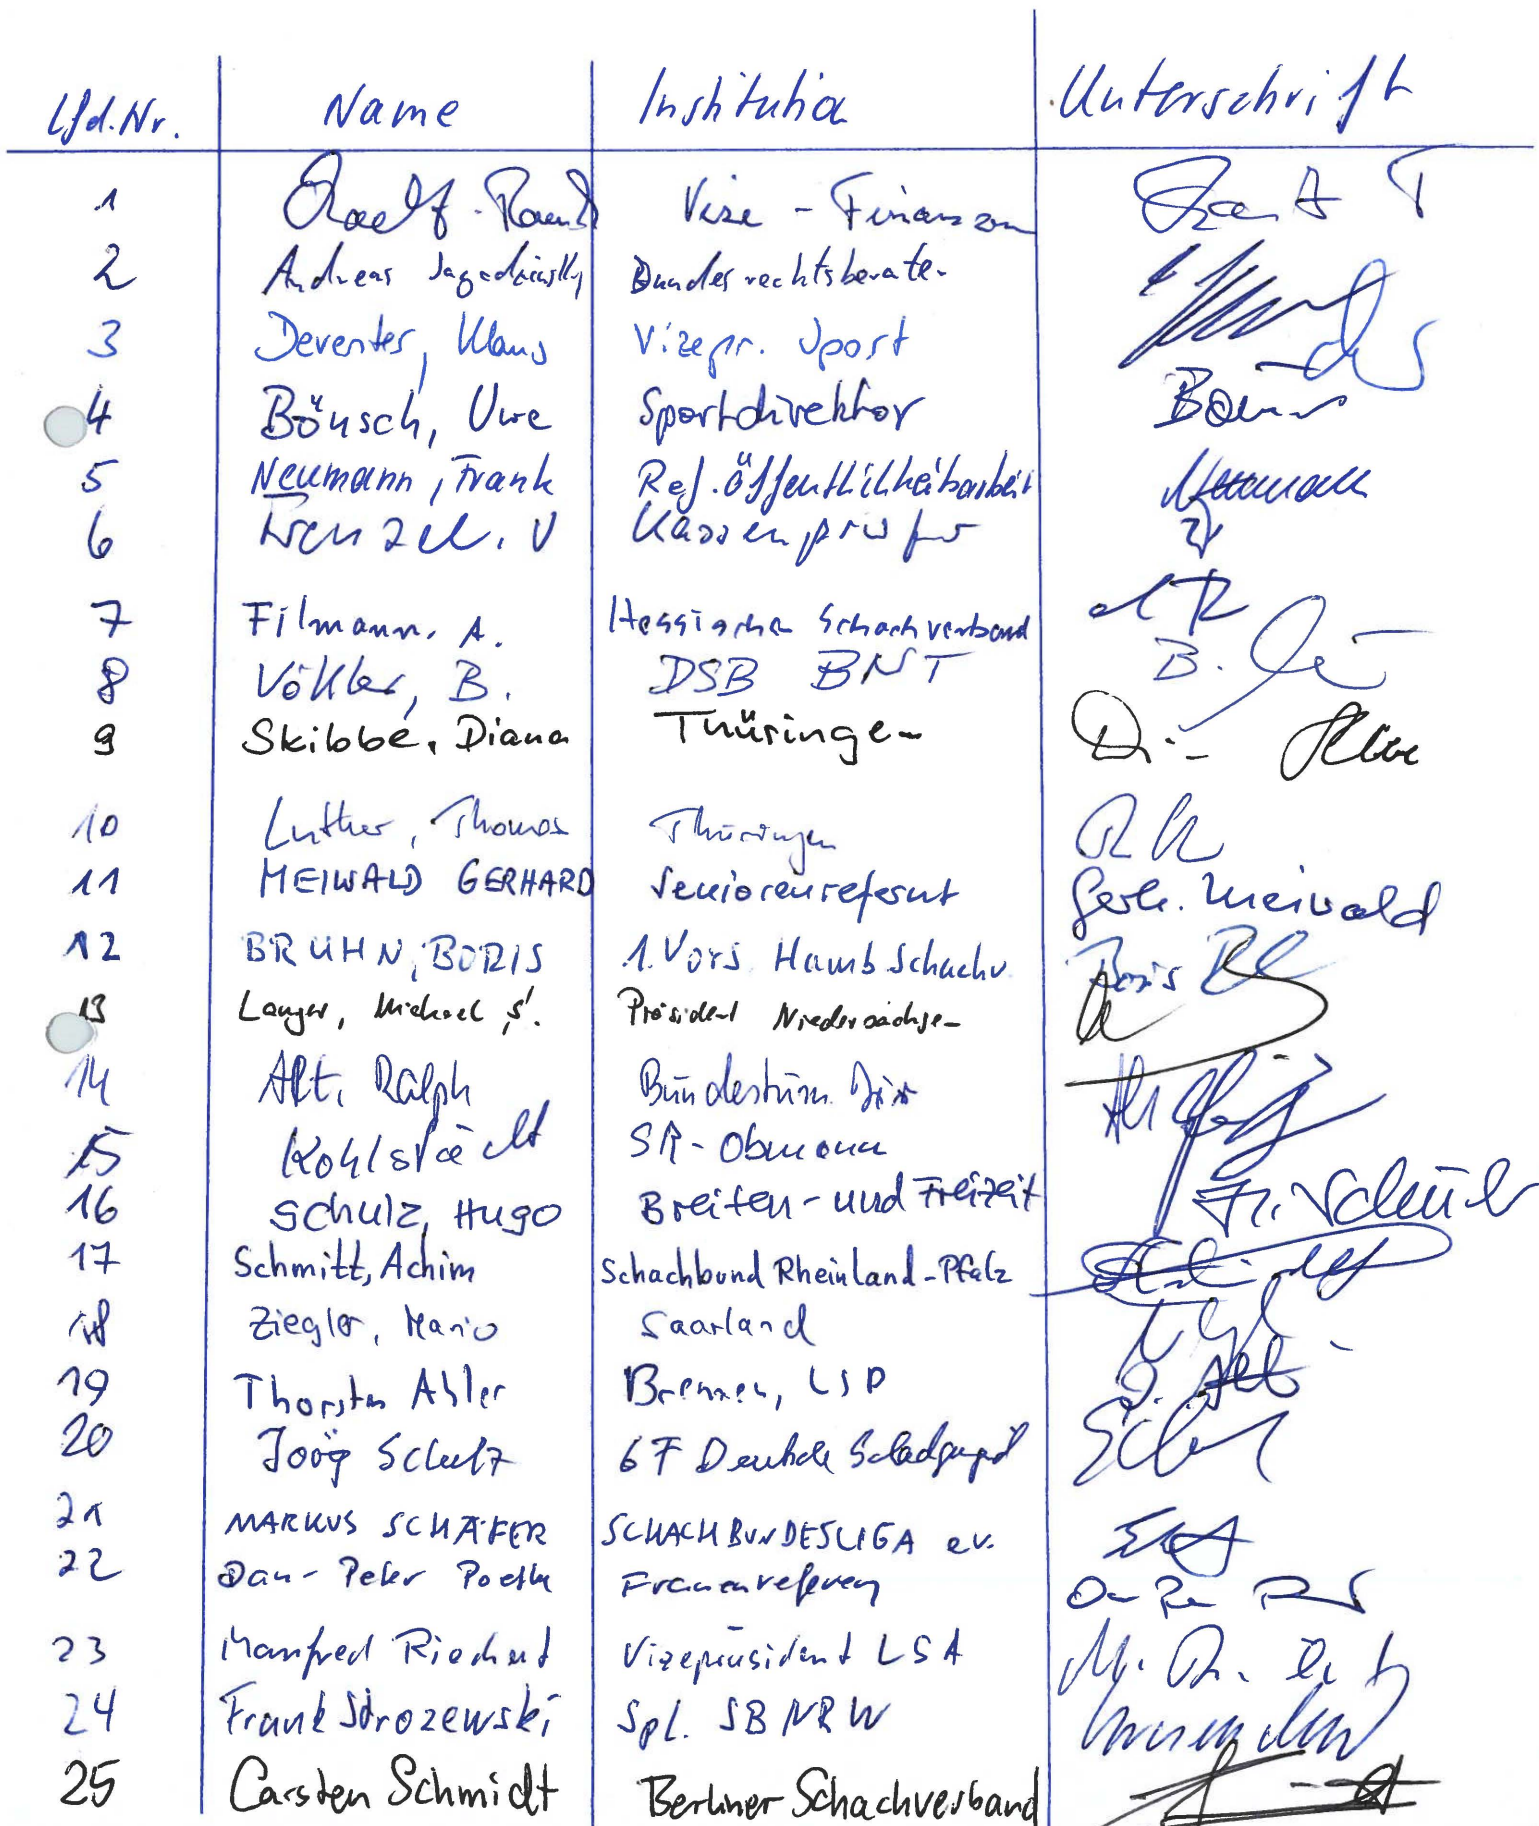 Lfd.Nr. Name Institutio Unterschrift
1 Vize - Finanzen
2 Andreas Jagodzinsky Bundesrechtsberater
3 Deventer, Klaus Vizepr. Sport
4 Bönsch, Uwe Sportdirektor
5 Neumann, Frank Ref. Öffentlichkeitsarbeit Neumann
6 Wenzel, U Kassenprüfer
7 Filmann, A. Hessischer Schachverband
8 Vökler, B. DSB BNT B.
9 Skibbe, Diana Thüringen
10 Luther, Thomas Thüringen
11 MEIWALD GERHARD Seniorenreferent Gerh. Meiwald
12 BRUHN, BORIS 1. Vors. Hamb. Schachv Boris
13 Langer, Michael Präsident Niedersachsen
14 Alt, Ralph Bundesturn. Dir
15 Kohlstädt SR-Obmann
16 Schulz, Hugo Breiten- und Freizeit
17 Schmitt, Achim Schachbund Rheinland-Pfalz
18 Ziegler, Mario Saarland
19 Thorsten Ahler Bremen, LSP
20 Jörg Schulz GF Deutsche Schachjugend
21 MARKUS SCHÄFER SCHACHBUNDESLIGA e.V.
22 Dan-Peter Poetke Frauenreferent
23 Manfred Riechert Vizepräsident LSA
24 Frank Strozewski Spl. SB NRW
25 Carsten Schmidt Berliner Schachverband